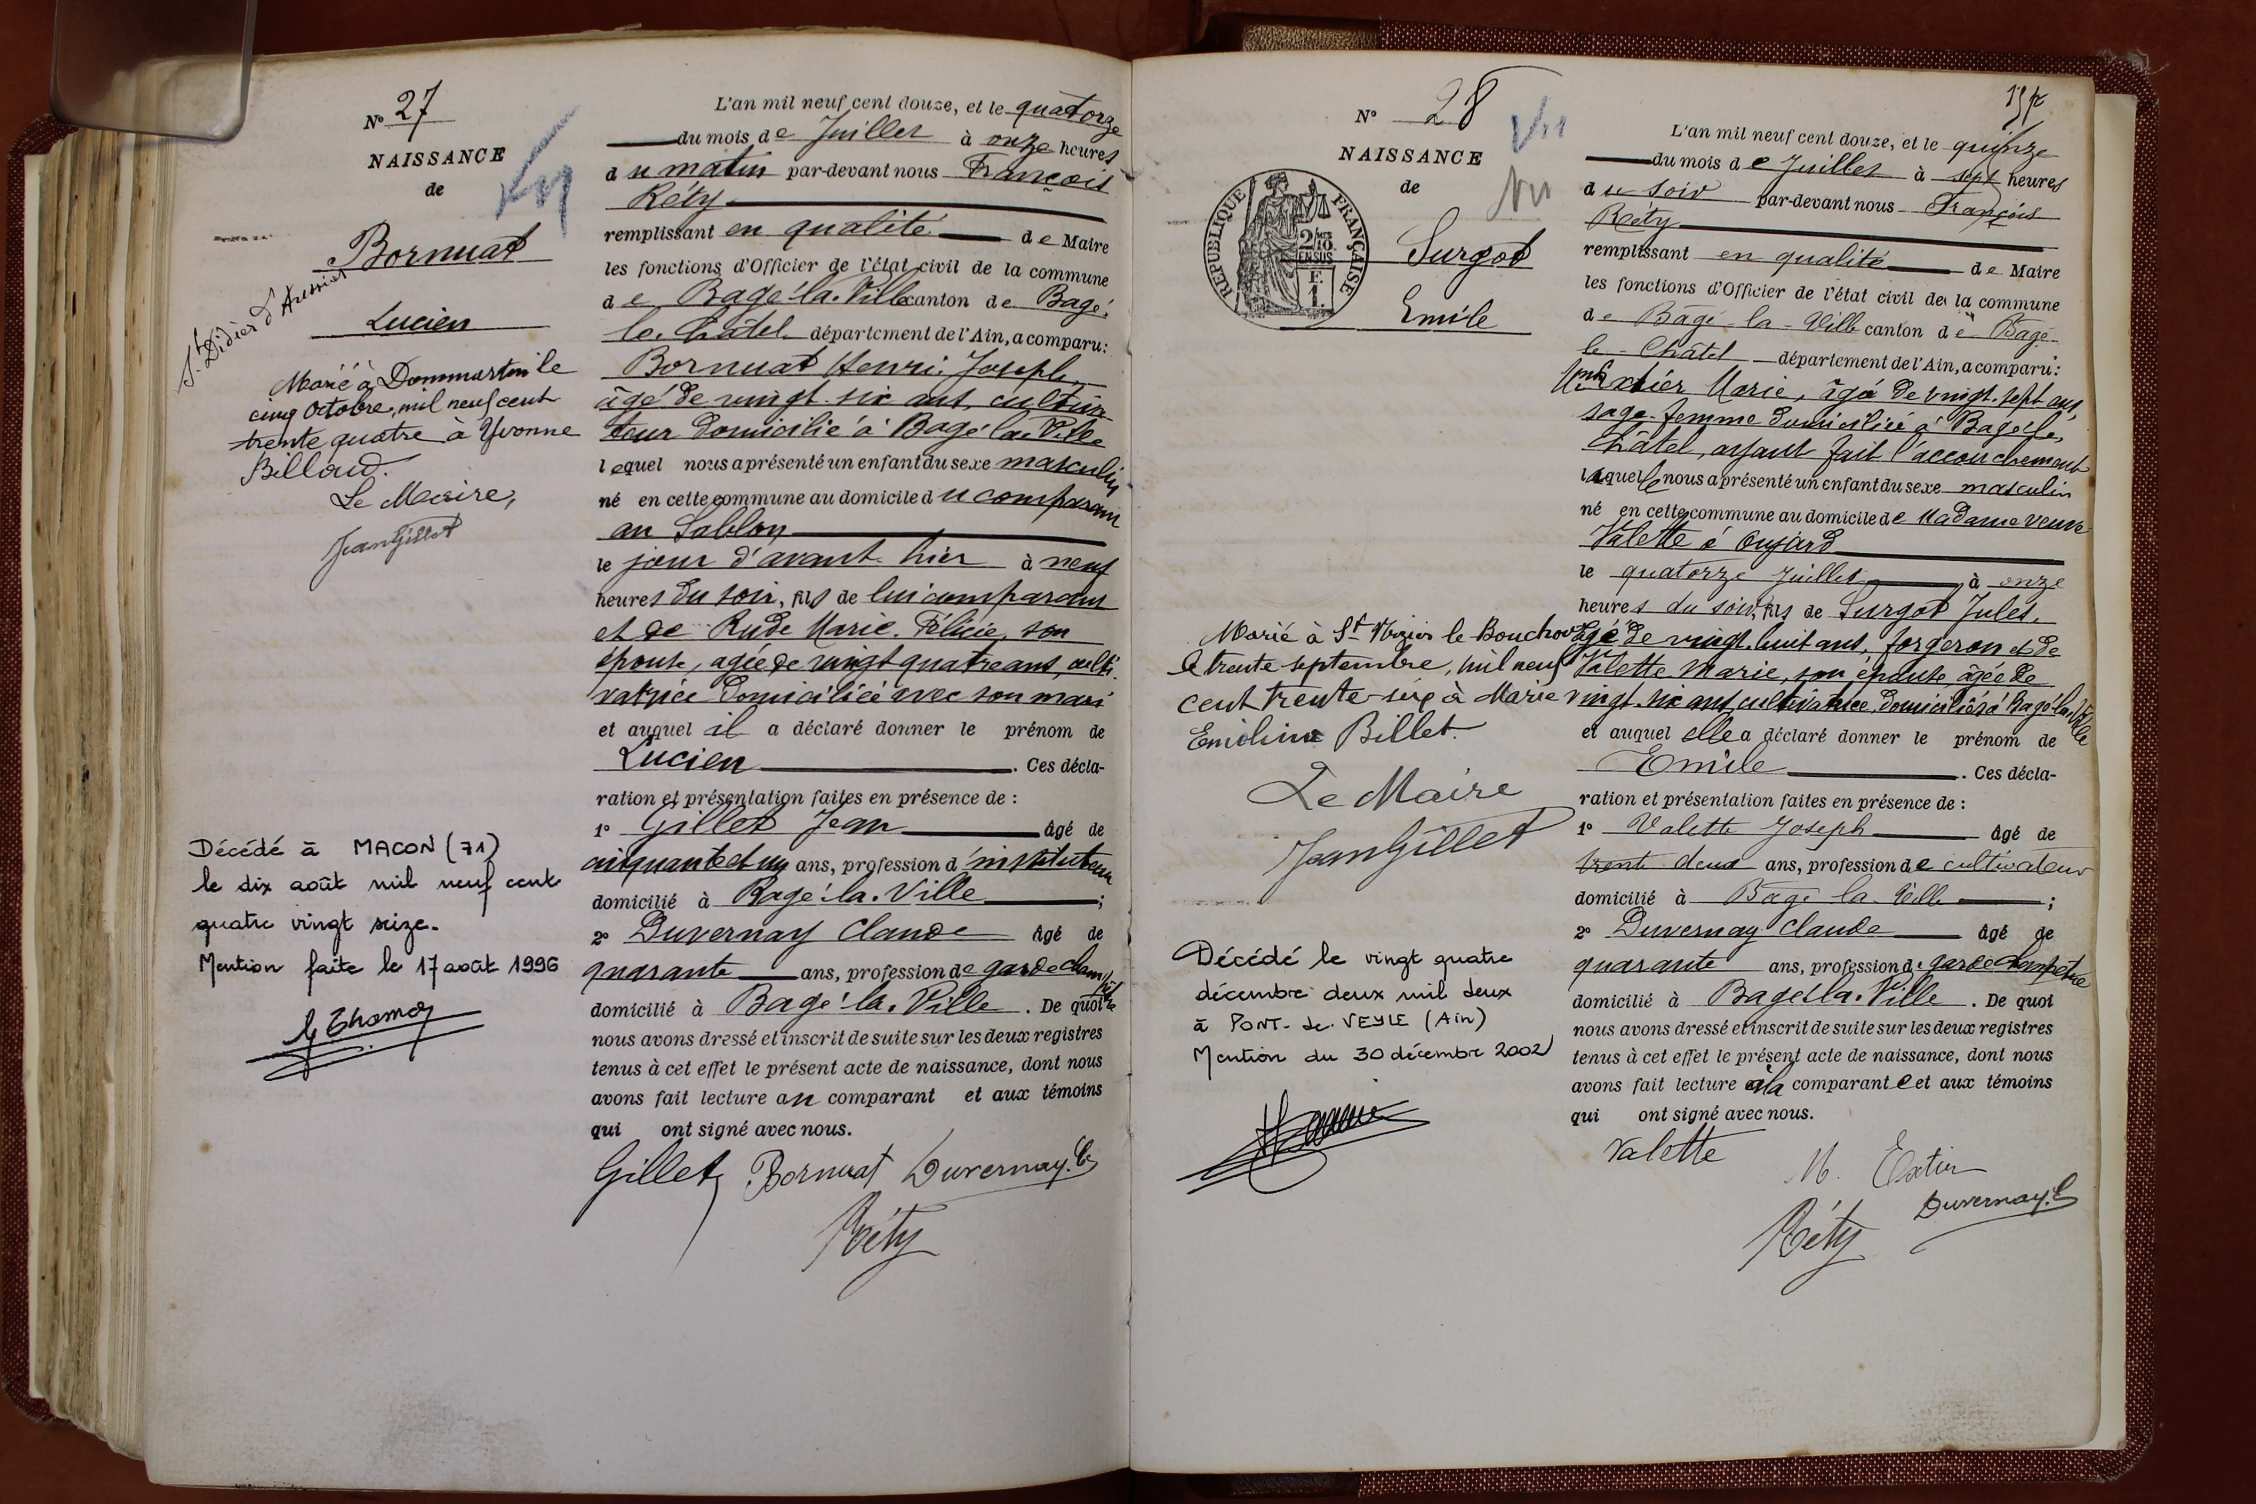 N° 27
NAISSANCE
de
Bornuat
Lucien
St Didier d'Aussiat
Marié à Dommartin le
cinq Octobre, mil neuf cent
trente quatre à Yvonne
Billoud.
Le Maire,
Jean Gillet
Décédé à MACON (71)
le dix août mil neuf cent
quatre vingt seize.
Mention faite le 17 août 1996
L'an mil neuf cent douze, et le quatorze
du mois de Juillet à onze heures
du matin par-devant nous François
Réty
remplissant en qualité de Maire
les fonctions d'Officier de l'état civil de la commune
de Bagé-la-Ville canton de Bagé-
le-Châtel département de l'Ain, a comparu:
Bornuat Henri Joseph,
âgé de vingt-six ans, cultiva-
teur domicilié à Bagé-la-Ville
lequel nous a présenté un enfant du sexe masculin
né en cette commune au domicile du comparant
au Sablon
le jour d'avant-hier à neuf
heures du soir, fils de lui comparant
et de Rude Marie-Félicie, son
épouse, agée de vingt quatre ans, culti-
vatrice domiciliée avec son mari
et auquel il a déclaré donner le prénom de
Lucien. Ces décla-
ration et présentation faites en présence de :
1° Gillet Jean âgé de
cinquante et un ans, profession d'instituteur
domicilié à Bagé-la-Ville ;
2° Duvernay Claude âgé de
quarante ans, profession de garde champêtre
domicilié à Bagé-la-Ville. De quoi
nous avons dressé et inscrit de suite sur les deux registres
tenus à cet effet le présent acte de naissance, dont nous
avons fait lecture au comparant et aux témoins
qui ont signé avec nous.
Gillet Bornuat Duvernay. C
Réty
N° 28
Vu
NAISSANCE
de
Vu
RÉPUBLIQUE FRANÇAISE
2/10 EN SUS
F.
1.
Surgot
Emile
Marié à St Nizier le Bouchoux
le trente septembre, mil neuf
cent trente-six à Marie
Emeline Billet.
Le Maire
Jean Gillet
Décédé le vingt quatre
décembre deux mil deux
à PONT-de-VEYLE (Ain)
Mention du 30 décembre 2002
L'an mil neuf cent douze, et le quinze
du mois de Juillet à sept heures
du soir par-devant nous François
Réty
remplissant en qualité de Maire
les fonctions d'Officier de l'état civil de la commune
de Bagé-la-Ville canton de Bagé-
le-Châtel département de l'Ain, a comparu:
Extier Marie, âgé de vingt-sept ans,
sage-femme domiciliée à Bagé-le-
Châtel, ayant fait l'accouchement
laquelle nous a présenté un enfant du sexe masculin
né en cette commune au domicile de Madame veuve
Valette à Oujard
le quatorze Juillet à onze
heures du soir, fils de Surgot Jules,
âgé de vingt-huit ans, forgeron et de
Valette Marie, son épouse âgée de
vingt-six ans, cultivatrice, domiciliés à Bagé-la-Ville
et auquel elle a déclaré donner le prénom de
Emile. Ces décla-
ration et présentation faites en présence de :
1° Valette Joseph âgé de
trente deux ans, profession de cultivateur
domicilié à Bagé-la-Ville ;
2° Duvernay Claude âgé de
quarante ans, profession de garde champêtre
domicilié à Bagé-la-Ville. De quoi
nous avons dressé et inscrit de suite sur les deux registres
tenus à cet effet le présent acte de naissance, dont nous
avons fait lecture à la comparante et aux témoins
qui ont signé avec nous.
Valette M. Extier
Duvernay. C
Réty